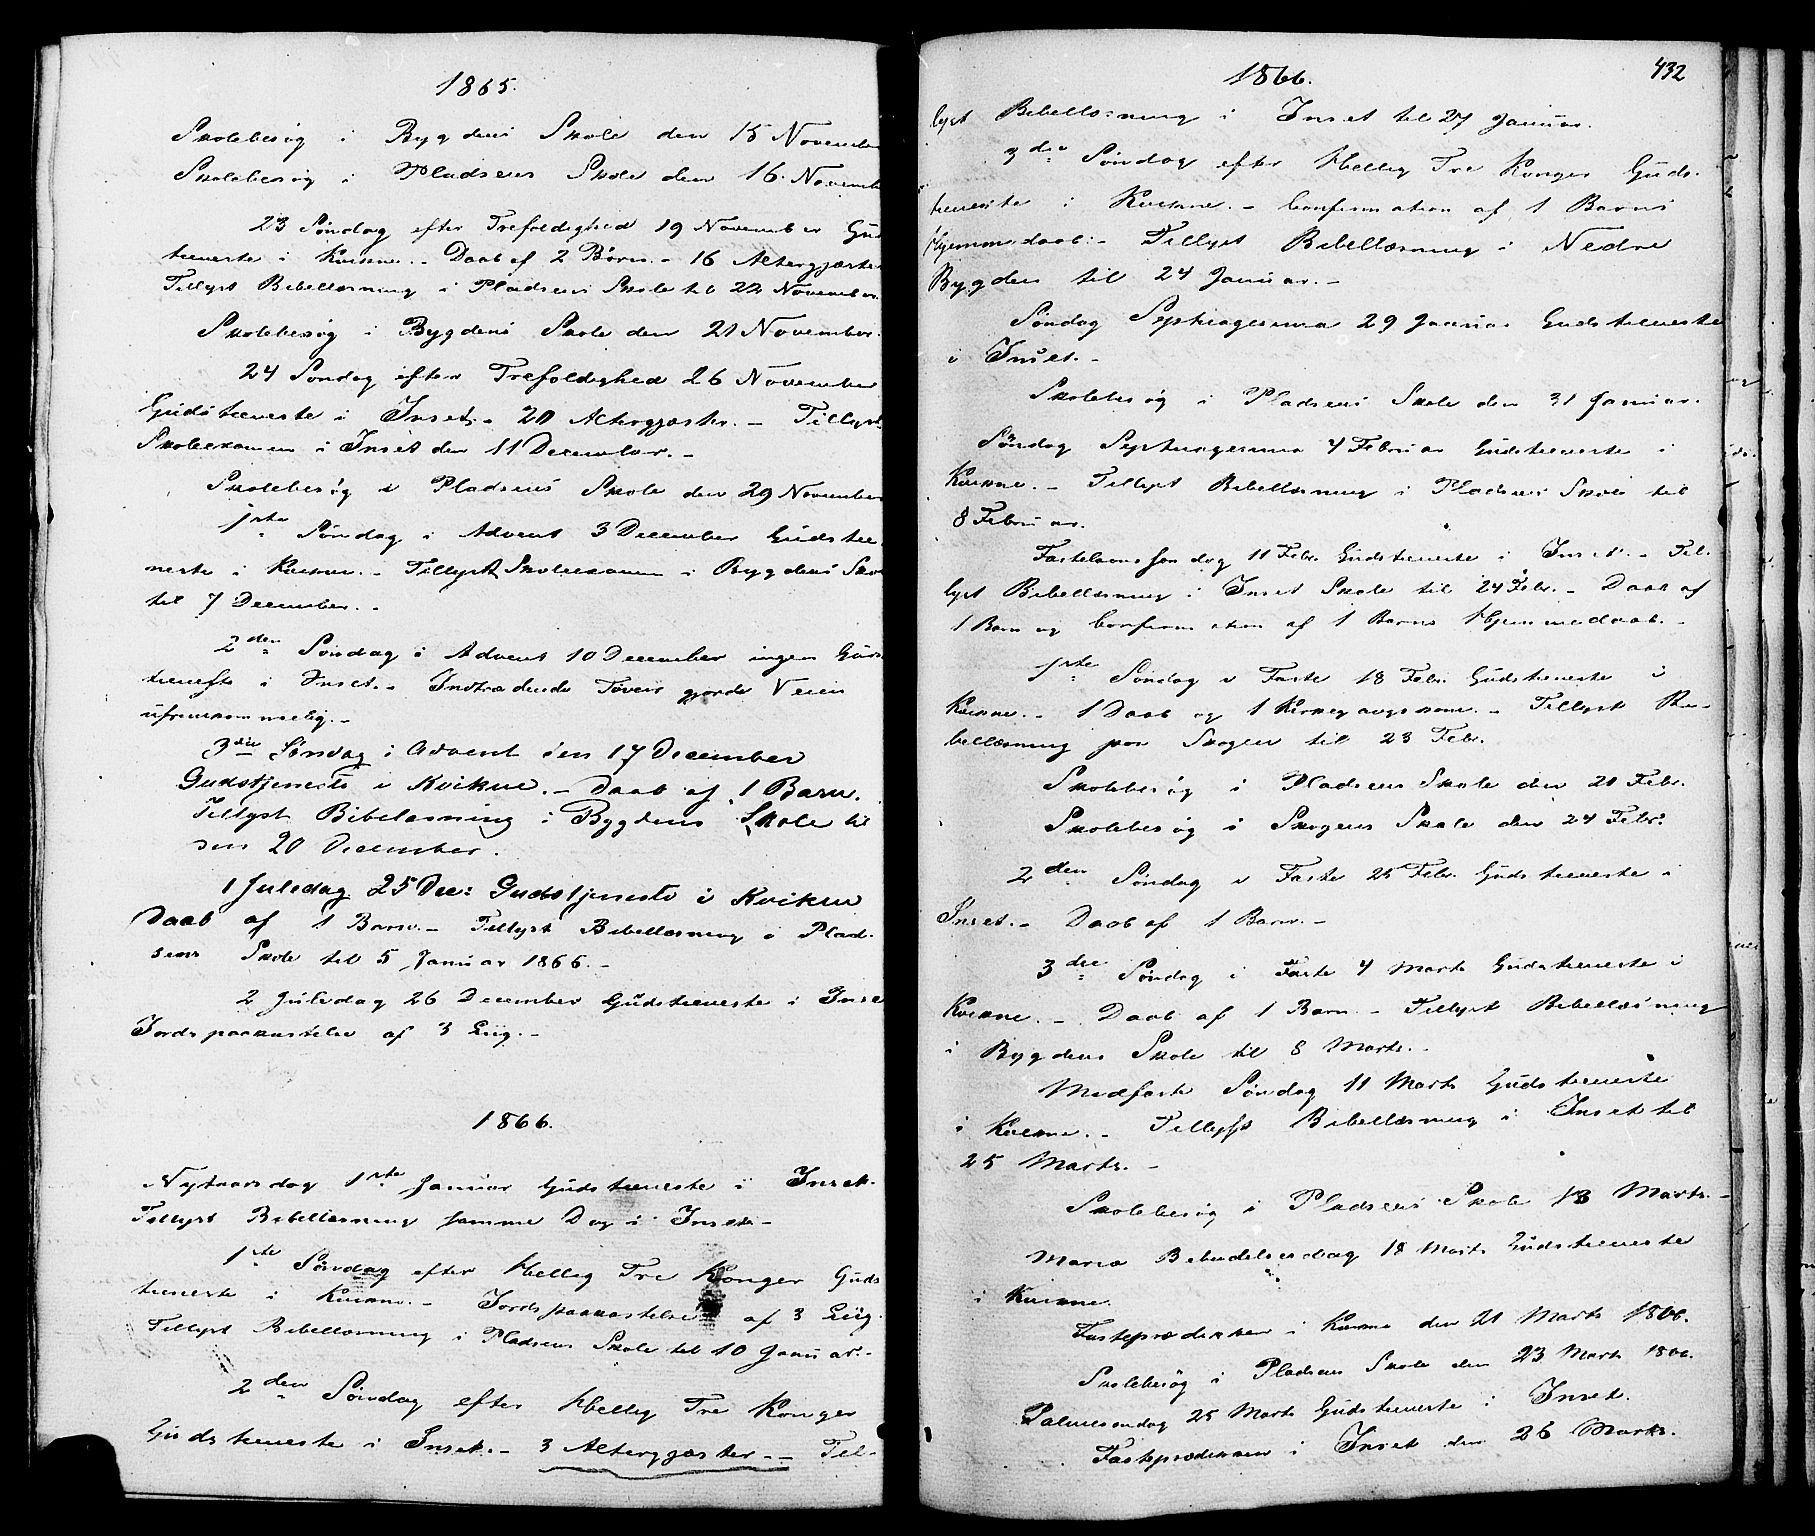 1865.
Skolebesøg i Bygdens Skole den 15 November
Skolebesøg i Pladsens Skole den 16. Novemb
23 Søndag efter Trefoldighed 19 November Gud
tieneste i Kvikne. - Daab af 2 Børn. - 16 Altergjæste
Tillyst Bibellæsning i Pladsens Skole til 22 November.
Skolebesøg i Bygdens Skole den 21 November.
24 Søndag efter Trefoldighed 26 November
Gudstieneste i Inset. - 20 Altergjæster. - Tillyst
Skoleexamen i Inset den 11 December. -
Skolebesøg i Pladsens Skole den 29 November
1ste Søndag i Advent 3 December Gudstie
neste i Kvikne. - Tillyst Skoleexamen i Bygdens Sko
til 7 December. -
2den Søndag i Advent 10 December ingen Guds
tieneste i Inset. - Indtrædende Tøveir gjorde Veien
ufremkommelig. -
3die Søndag i Advent den 17 December
Gudstjeneste i Kvikne. - Daab af 1 Barn.
Tillyst Bibelæsning i Bygdens Skole til
den 20 December.
1 Juledag 25 Dec: Gudstjeneste i Kvikne
Daab af 1 Barn. - Tillyst Bibellæsning i Plad-
sens Skole til 5 Januar 1866. -
2 Juledag 26 December Gudstieneste i Inse
Jordspaakastelse af 3 Liig. -
1866.
Nytaarsdag 1ste Januar Gudstieneste i Inset.
Tillyst Bibellæsning samme Dag i Inset. -
1ste Søndag efter Hellig Tre Konger Guds
tieneste i Kvikne. - Jordspaakastelse af 3 Liig.
Tillyst Bibellæsning i Pladsens Skole til 10 Januar. -
2den Søndag efter Hellig Tre Konger
Gudstieneste i Inset. - 3 Altergjæster. - Til-
1866. 432
lyst Bibellæsning i Inset til 27 Januar.
3die Søndag efter Hellig Tre Konger Guds-
tieneste i Kvikne. - Confirmation af 1 Barns
Hjemmedaab. - Tillyst Bibellæsning i Nedre
Bygden til 24 Januar. -
Søndag Septuagesima 29 Januar Gudstieneste
i Inset. -
Skolebesøg i Pladsens Skole den 31 Januar.
Søndag 4 Februar Gudstieneste i
Kvikne. - Tillyst Bibellæsning i Pladsens Skole til
8 Februar.
Fastelavnssøndag 11 Febr. Gudstieneste i Inset. - Til-
lyst Bibellæsning i Inset Skole til 24 Febr. - Daab af
1 Barn og Confirmation af 1 Barns Hjemmedaab. -
1ste Søndag i Faste 18 Febr. Gudstieneste i
Kvikne. - 1 Daab og 1 Kirkegangskone. - Tillyst Bi-
bellæsning paa Skogen til 23 Febr.
Skolebesøg i Pladsens Skole den 21 Febr.
Skolebesøg i Skogens Skole den 24 Febr.
2den Søndag i Faste 25 Febr. Gudstieneste i
Inset. - Daab af 1 Barn. -
3die Søndag i Faste 4 Marts Gudstieneste i
Kvikne. - Daab af 1 Barn. - Tillyst Bibellæsning
i Bygdens Skole til 8 Marts. -
Midfaste Søndag 11 Marts Gudstieneste
i Kvikne. - Tillyst Bibellæsning i Inset til
25 Marts. -
Skolebesøg i Pladsens Skole 13 Marts. -
Maria Bebudelsesdag 18 Marts Gudstieneste
i Kvikne.
Fasteprædiken i Kvikne den 21 Marts 1866.
Skolebesøg i Pladsens Skole den 23 Marts 1866.
Palmesøndag 25 Marts Gudstieneste i Inset.
Fasteprædiken i Inset den 26 Marts.